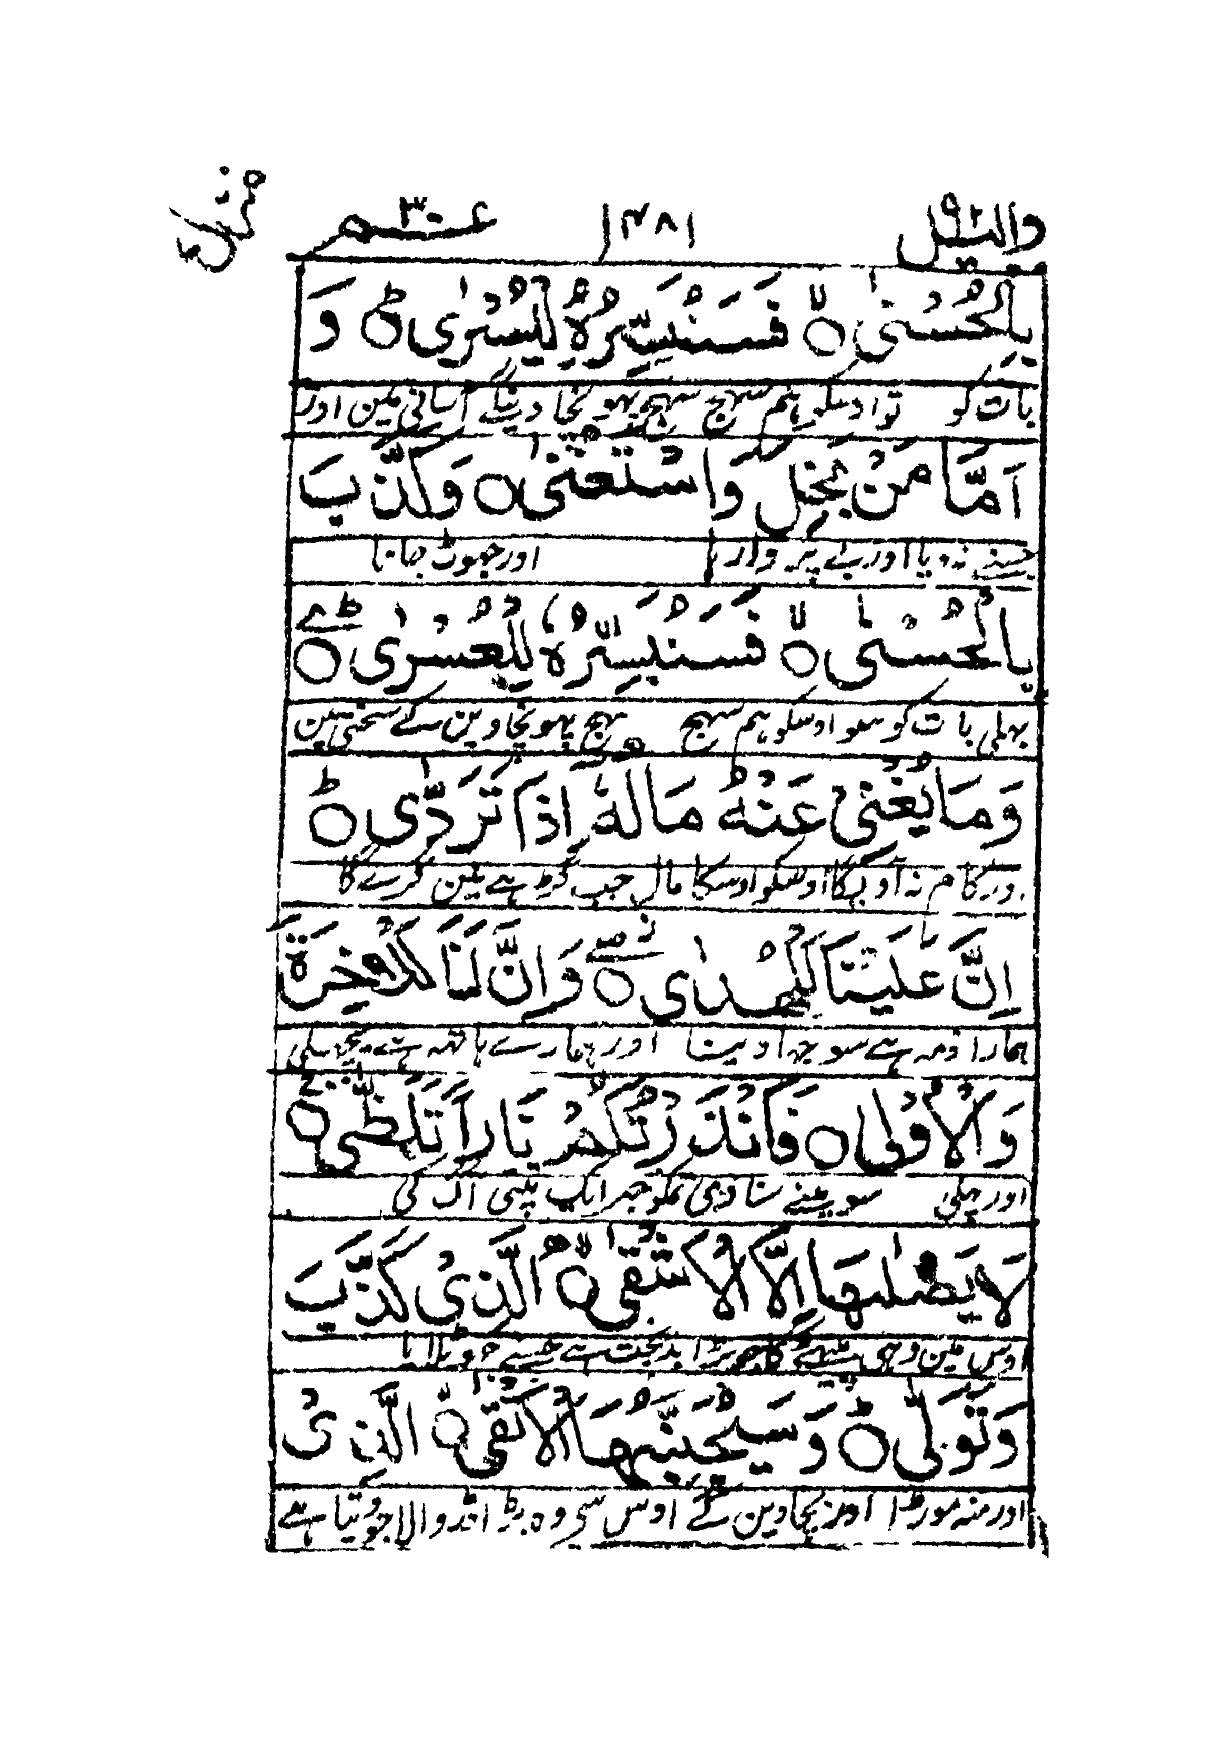 والیل ٩٢ ١٤٨١ عم ٣٠ منزل
بِالْحُسْنٰى ۙ فَسَنُيَسِّرُهٗ لِلْيُسْرٰى ؕ وَ
بات کو تو اوسکو ہم سہج سہج پہونچا دینگے آسانی مین اور
اَمَّا مَنْۢ بَخِلَ وَاسْتَغْنٰى ۙ وَكَذَّبَ
جسنے نہ دیا اور بے پروا رہا اور جھوٹ جانا
بِالْحُسْنٰى ۙ فَسَنُيَسِّرُهٗ لِلْعُسْرٰى ؕ
بہلی بات کو سو اوسکو ہم سہج سہج پہونچاوین گے سختی مین
وَمَا يُغْنِىْ عَنْهُ مَالُهٗۤ اِذَا تَرَدّٰى ؕ
اور کام نہ آویگا اوسکو اوسکا مال جب گڑھے مین گرے گا
اِنَّ عَلَيْنَا لَلْهُدٰى ۖ وَاِنَّ لَنَا لَلْاٰخِرَةَ
ہمارا ذمہ ہے سوجہا دینا اور ہمارے ہاتھہ ہے پچھلی
وَالْاُوْلٰى فَاَنْذَرْتُكُمْ نَارًا تَلَظّٰى ۚ
اور پہلی سو مینے سنا دی تمکو خبر ایک تپتی آگ کی
لَا يَصْلٰىهَاۤ اِلَّا الْاَشْقَى ۙ الَّذِىْ كَذَّبَ
اوس مین وہی بیٹھے گا جو بڑا بدبخت ہے جسنے جھوٹلایا
وَتَوَلّٰى ؕ وَسَيُجَنَّبُهَا الْاَتْقَى ۙ الَّذِىْ
اور منہ موڑا اور بچاوین گے اوس سے وہ بڑا ڈر والا جو دیتا ہے